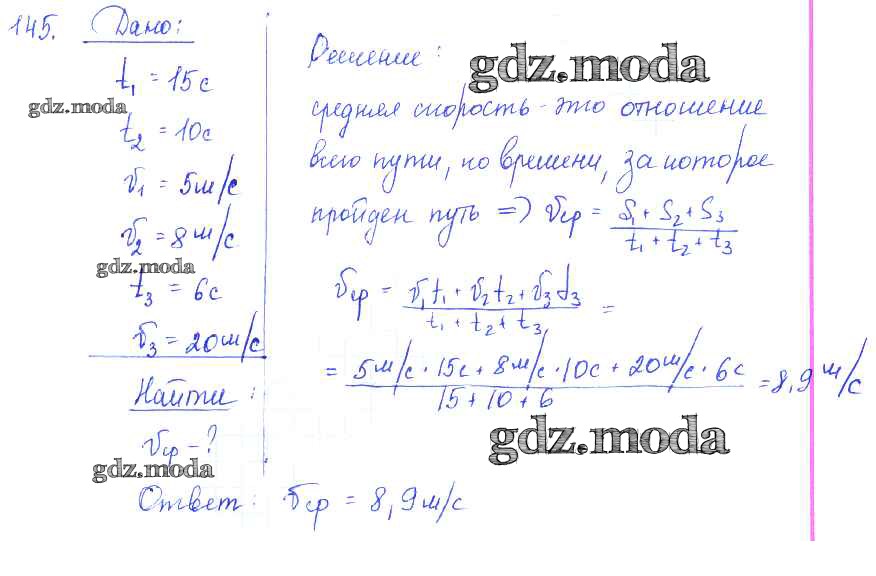 145. Дано:
t₁ = 15с
t₂ = 10с
v₁ = 5м/с
v₂ = 8м/с
t₃ = 6с
v₃ = 20м/с
Найти:
vср - ?
Решение:
средняя скорость - это отношение
всего пути, ко времени, за которое
пройден путь => vср = S₁ + S₂ + S₃ / t₁ + t₂ + t₃
vср = v₁t₁ + v₂t₂ + v₃t₃ / t₁ + t₂ + t₃ =
= 5м/с · 15с + 8м/с · 10с + 20м/с · 6с / 15 + 10 + 6 = 8,9 м/с
Ответ: vср = 8,9м/с
gdz.moda
gdz.moda
gdz.moda
gdz.moda
gdz.moda